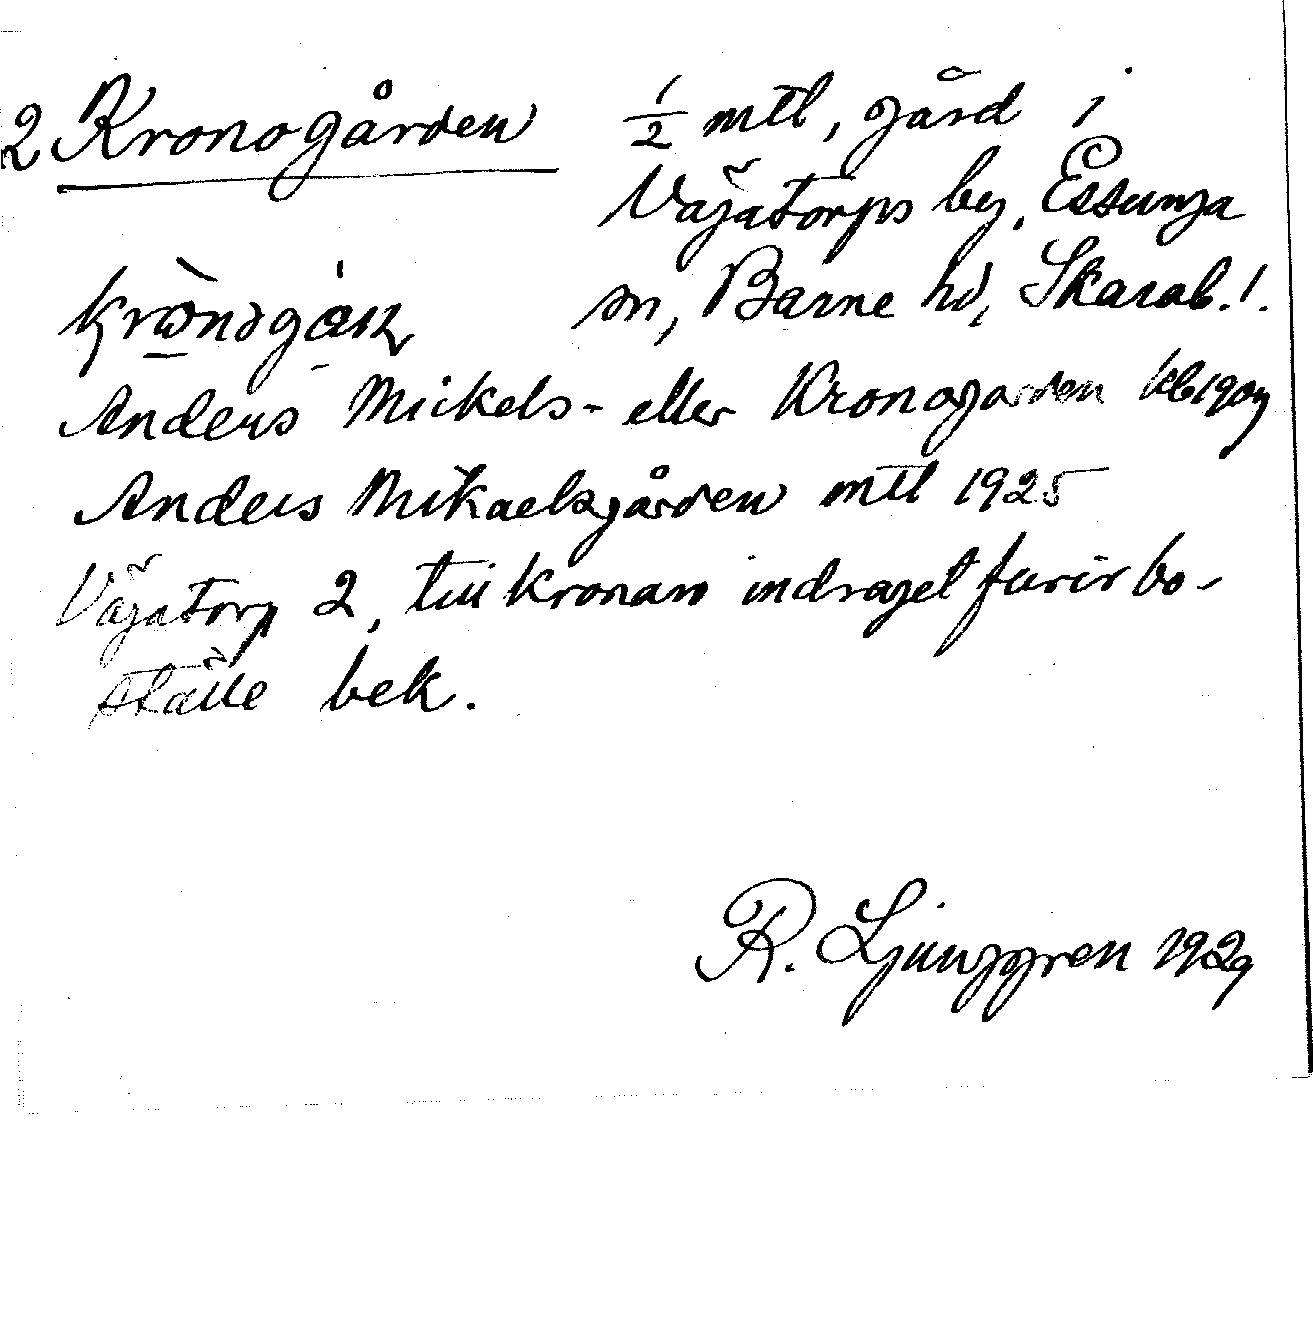 2 Kronogården 1/2 mtl, gård i
Väjatorps by, Essunga
sn, Barne hd, Skarab. l.
Anders Mickels- eller Kronogården
Anders Mikaelsgården mtl 1925
Väjatorp 2, till kronan indraget furirbo-
ställe bek.
R. Ljunggren 1929